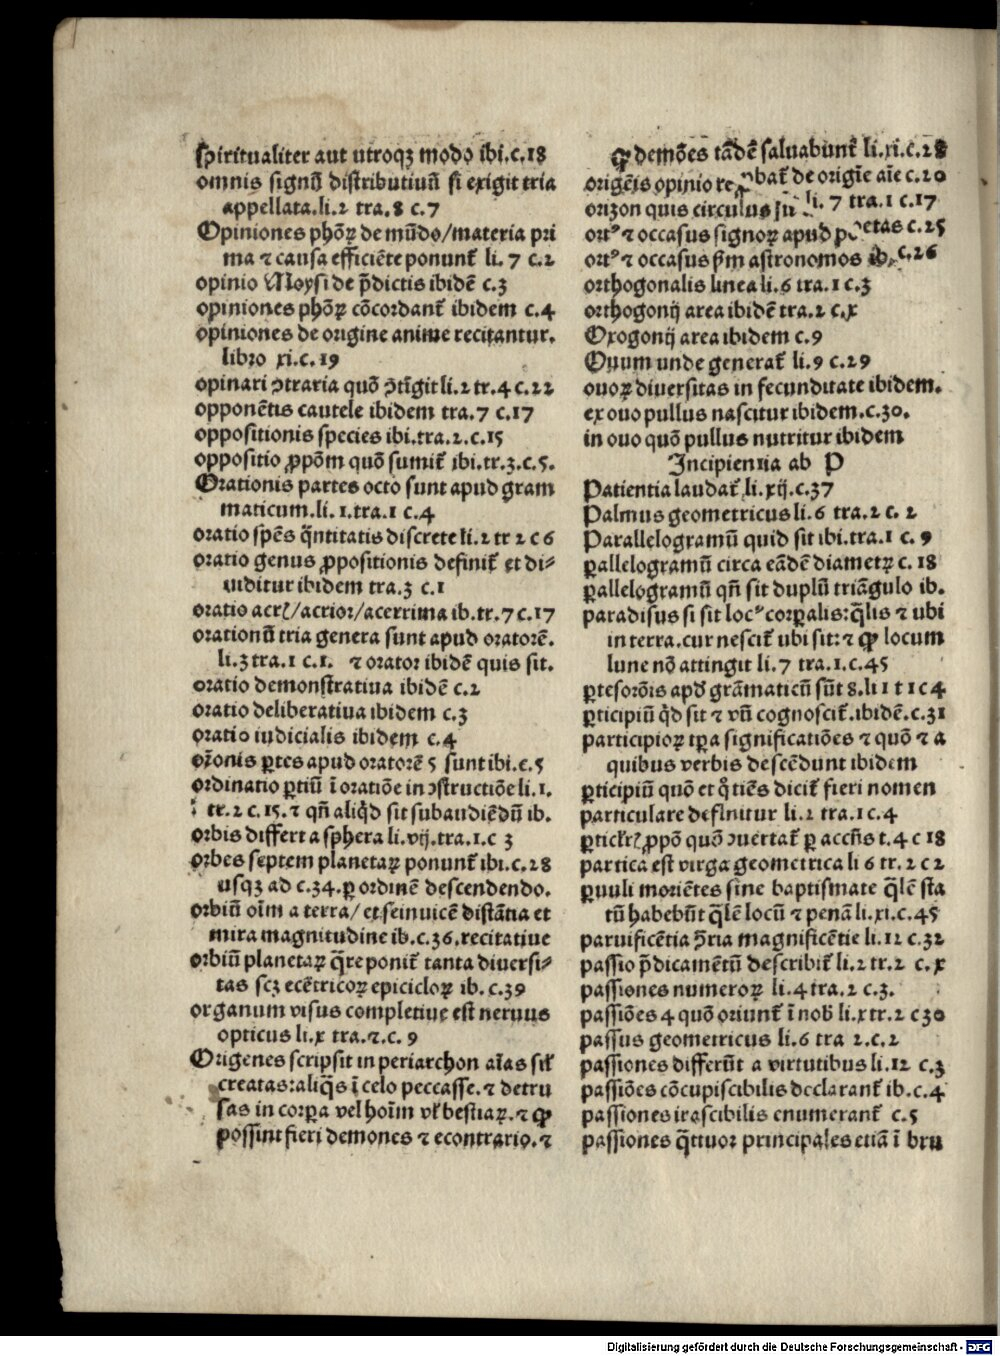 spiritualiter aut utroqꝫ modo ibi.c.18
omnis signū distributiuū si exigit tria
appellata.li.2 tra.8 c.7
Opiniones phōꝝ de mūdo/materia pri
ma ⁊ causa efficiēte ponunt᷑ li. 7 c.2
opinio Moysi de p̄dictis ibidē c.3
opiniones phōꝝ cōcordant᷑ ibidem c.4
opiniones de origine anime recitantur.
libro xi.c.19
opinari ꝯtraria quō ꝯtīgit li.2 tr.4 c.22
opponētis cautele ibidem tra.7 c.17
oppositionis species ibi.tra.2.c.15
oppositio ꝓpōm quō sumit᷑ ibi.tr.3.c.5.
Orationis partes octo sunt apud gram
maticum.li.1.tra.1 c.4
oratio spēs q̄ntitatis discrete li.2 tr 2 c 6
oratio genus ꝓpositionis definit᷑ et di⸗
uiditur ibidem tra.3 c.1
oratio acrꝭ/acrior/acerrima ib.tr.7 c.17
orationū tria genera sunt apud oratorē.
li.3 tra.1 c.1. ⁊ orator ibidē quis sit.
oratio demonstratiua ibidē c.2
oratio deliberatiua ibidem c.3
oratio iudicialis ibidem c.4
or̄onis ꝑtes apud oratorē 5 sunt ibi.c.5
ordinatio ꝑtiū ī oratiōe in ꝯstructiōe li.1.
tr.2 c.15.⁊ qn̄ aliq̇d sit subaudiēdū ib.
orbis differt a sphera li.vij.tra.1.c 3
orbes septem planetaꝝ ponunt᷑ ibi.c.28
usqꝫ ad c.34.ꝑ ordinē descendendo.
orbiū oīm a terra/et seinuicē distātia et
mira magnitudine ib.c.36.recitatiue
orbiū planetaꝝ q̄re ponit᷑ tanta diuersi⸗
tas scꝫ ecētricoꝝ epicicloꝝ ib. c.39
organum visus completiue est neruus
opticus li.x tra.2.c. 9
Origenes scripsit in periarchon aīas sil᷑
creatas:aliq̄s ī celo peccasse.⁊ detru
sas in corꝑa vel hoīm vl᷑ bestiaꝝ.⁊ ꝙ
possint fieri demones ⁊ econtrario.⁊
ꝙ demōes tādē saluabunt᷑ li.xi.c.28
origēis opinio re ꝓbat᷑ de origīe aīe c.20
orizon quis circulus li. 7 tra.1 c.17
ortꝰ ⁊ occasus signoꝝ apud poetas c.25
ortꝰ ⁊ occasus ẜm astronomos ib. c.26
orthogonalis linea li.6 tra.1 c.3
orthogonij area ibidē tra.2 c.x
Oxogonij area ibidem c.9
Ouum unde generat᷑ li.9 c.29
ouoꝝ diuersitas in fecunditate ibidem.
ex ouo pullus nascitur ibidem.c.30.
in ouo quō pullus nutritur ibidem
Incipientia ab P
Patientia laudat᷑ li.xij.c.37
Palmus geometricus li.6 tra.2 c. 2
Parallelogramū quid sit ibi.tra.1 c. 9
ꝑallelogramū circa eādē diametꝝ c. 18
ꝑallelogramū qn̄ sit duplū triāgulo ib.
paradisus si sit locꝰ corꝑalis:q̄lis ⁊ ubi
in terra.cur nescit᷑ ubi sit:⁊ ꝙ locum
lune nō attingit li.7 tra.1.c.45
ꝑtes orōis apd̄ grāmaticū sūt 8.li 1 t 1 c 4
ꝑticipiū q̇d sit ⁊ vn̄ cognoscit᷑.ibidē.c.31
participioꝝ tꝑa significatiōes ⁊ quō ⁊ a
quibus verbis descēdunt ibidem
ꝑticipiū quō et q̇tiēs dicit᷑ fieri nomen
particulare definitur li.2 tra.1 c.4
ꝑtic̄l᷑rꝭ ꝓpō quō ꝯuertat᷑ ꝑ accn̄s t.4 c 18
partica est virga geometrica li 6 tr.2 c 2
ꝑuuli moriētes sine baptismate q̄lē sta
tū habebūt q̄lē locū ⁊ penā li.xi.c.45
paruificētia ꝯ̄ria magnificētie li.12 c.32
passio p̄dicamētū describit᷑ li.2 tr.2 c.x
passiones numeroꝝ li.4 tra.2 c.3.
passiōes 4 quō oriunt᷑ ī nob̄ li.x tr.2 c30
passus geometricus li.6 tra 2.c.2
passiones differūt a virtutibus li.12 c.3
passiōes cōcupiscibilis declarant᷑ ib.c.4
passiones irascibilis enumerant᷑ c.5
passiones q̄ttuor principales etiā ī bru
Digitalisierung gefördert durch die Deutsche Forschungsgemeinschaft - DFG